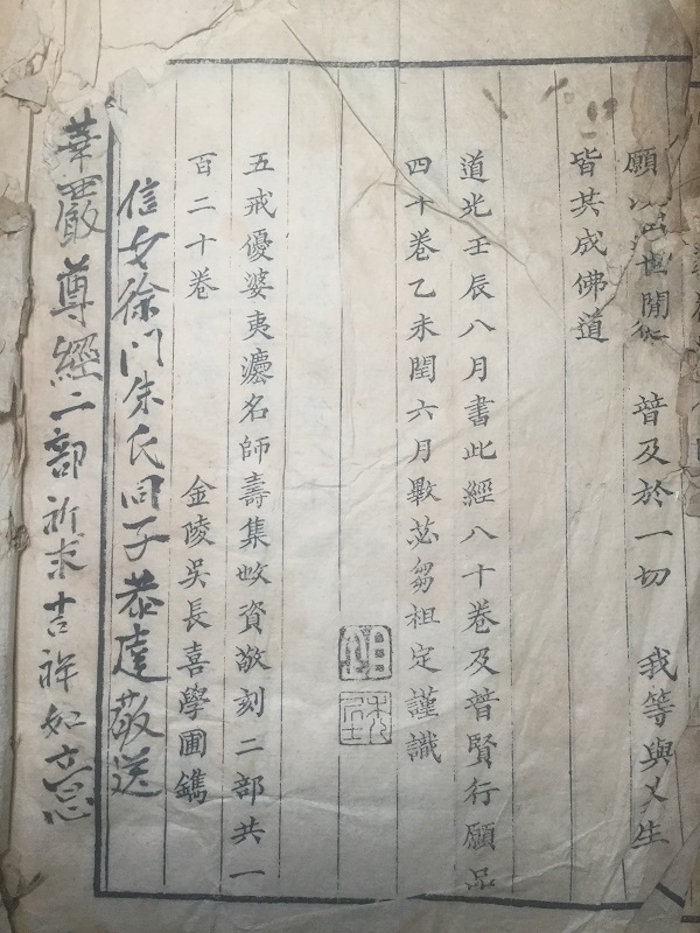 願以此 普及於一切 我等與眾生
皆共成佛道
道光壬辰八月書此經八十卷及普賢行願品
四十卷乙未閏六月畢苾芻祖定謹識
祖
五戒優婆夷灋名師壽集收資敬刻二部共一
百二十卷 金陵吳長喜學圃鐫
信女徐門朱氏同子恭達敬送
華嚴尊經二部祈求吉祥如意